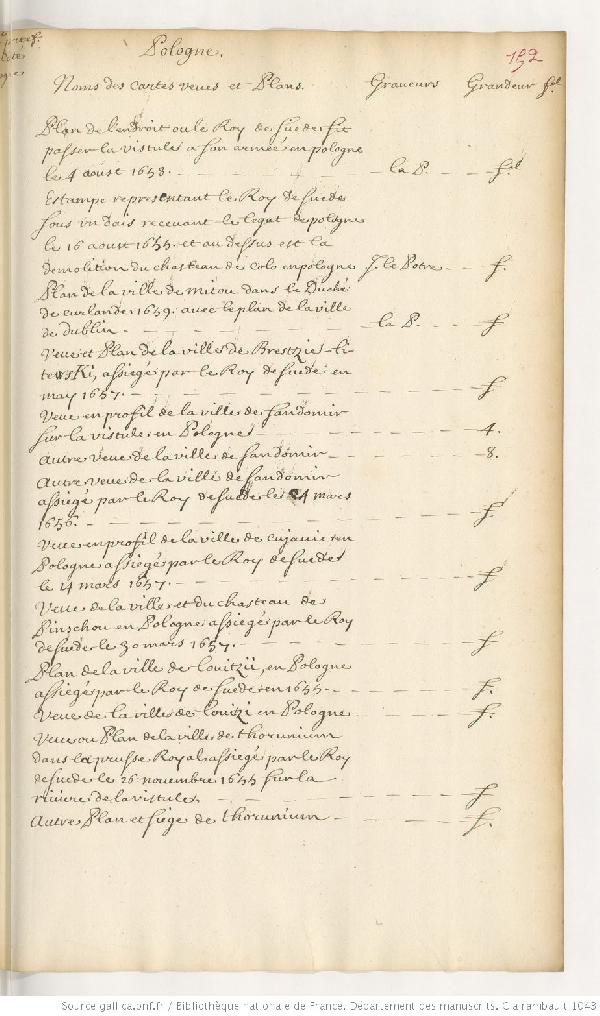 Pologne.
192
Noms des cartes veues et Plans. Graveurs Grandeur fol.
Plan de l'endroit ou le Roy de suede fit
passer la vistule a son armée en pologne
le 4 aoust 1655. la P. fol
Estampe representant le Roy de suede
sous un dais recevant le legat de pologne
le 16 aoust 1655. et au dessus est la
demolition du chasteau de colo en pologne J. le Potre f.
Plan de la ville de mitou dans le Duché
de curlande 1659. avec le plan de la ville
de dublin la P. f
Veue et Plan de la ville de Brestzie-li-
tewski, assiegé par le Roy de suede en
may 1657. f
Veue en profil de la ville de sandomir
sur la vistule en Pologne 4.
autre veue de la ville de sandomir 8.
autre veue de la ville de sandomir
assiegé par le Roy de suede le 24 mars
1656. f.
Veue en profil de la ville de cujavie en
Pologne assiegé par le Roy de suede
le 14 mars 1657. f
Veue de la ville et du chasteau de
Pinschou en Pologne assiegé par le Roy
de suede le 30 mars 1657. f
Plan de la ville de louitzü, en Pologne
assiegé par le Roy de suede en 1655. f.
Veue de la ville de louizi en Pologne f.
Veue ou Plan de la ville de thorunium
dans la prusse Royal assiegé par le Roy
de suede le 26 novembre 1655 sur la
riviere de la vistule f
Autre Plan et siege de thorunium f.
Source gallica.bnf.fr / Bibliothèque nationale de France. Département des manuscrits. Clairambault 1043